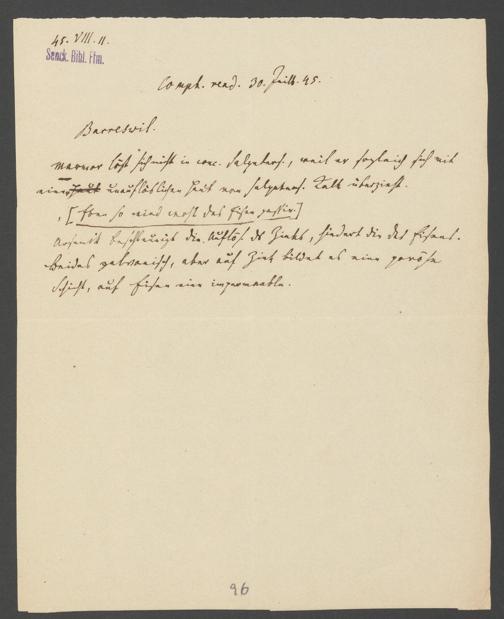 45. VIII. 11.
Senck. Bibl. Ffm.
Compt. rend. 30. Juill. 45.
Barreswil.
Marmor löst sich nicht in conc. Salpeters., weil er sogleich sich mit
einer Haut unauflöslichen Haut von salpeters. Kalk überzieht.
[Eben so wird wohl das Eisen passiv.]
Arsenik beschleunigt die Auflös. des Zinks, hindert die des Eisens.
Beides galvanisch, aber auf Zink bildet es eine poröse
Schicht, auf Eisen eine impermeable.
96